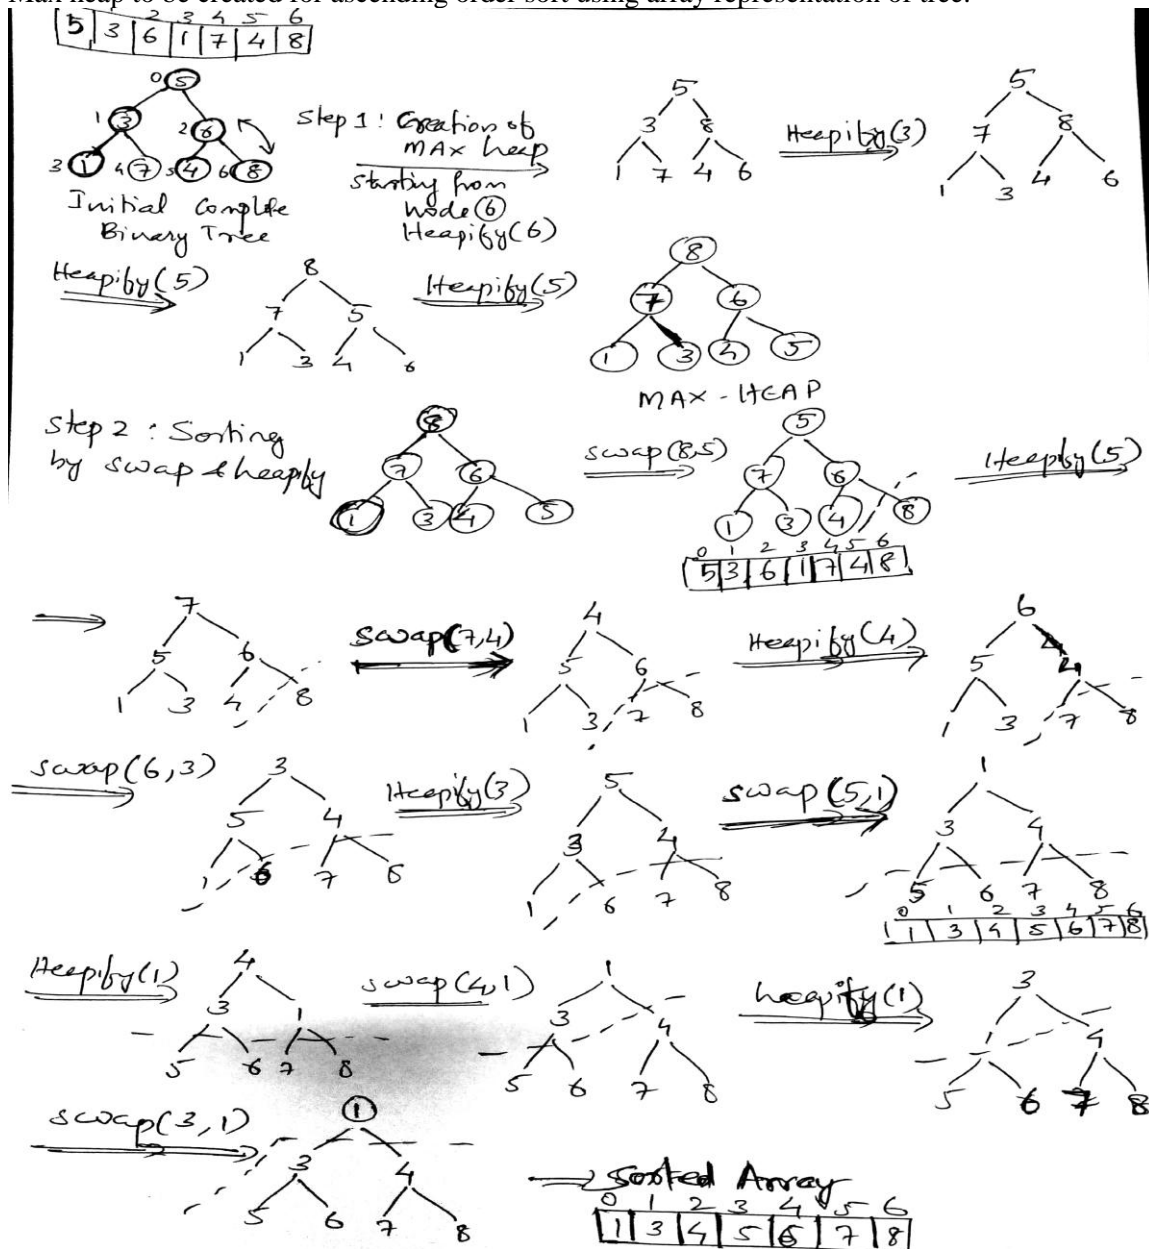 Max heap to be created for ascending order sort using array representation of tree.
2 3 4 5 6
5 3 6 1 7 4 8
0 5
1 3 2 6
3 1 4 7 5 4 6 8
Initial Complete
Binary Tree
Step 1: Creation of
MAX heap
Starting from
node 6
Heapify(6)
5
3 8
1 7 4 6
Heapify(3)
5
7 8
1 3 4 6
Heapify(5)
8
7 5
1 3 4 6
Heapify(5)
8
7 6
1 3 4 5
MAX-HEAP
Step 2: Sorting
by swap & heapify
8
7 6
1 3 4 5
swap(8,5)
5
7 6
1 3 4 8
0 1 2 3 4 5 6
5 3 6 1 7 4 8
Heapify(5)
7
5 6
1 3 4 8
swap(7,4)
4
5 6
1 3 7 8
Heapify(4)
6
5 4
1 3 7 8
swap(6,3)
3
5 4
1 6 7 8
Heapify(3)
5
3 4
1 6 7 8
swap(5,1)
1
3 4
5 6 7 8
0 1 2 3 4 5 6
1 3 4 5 6 7 8
Heapify(1)
4
3 1
5 6 7 8
swap(4,1)
1
3 4
5 6 7 8
heapify(1)
3
1 4
5 6 7 8
swap(3,1)
1
3 4
5 6 7 8
Sorted Array
0 1 2 3 4 5 6
1 3 4 5 6 7 8